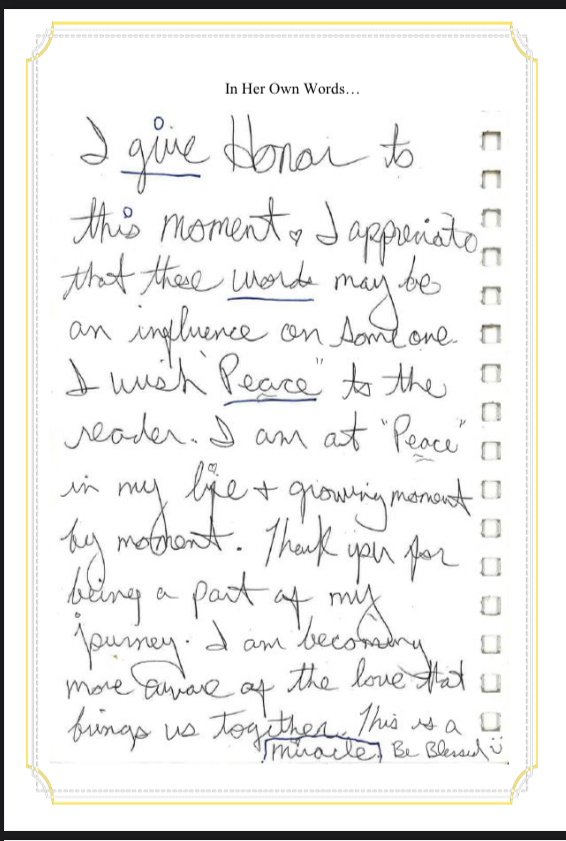 In Her Own Words…
I give Honor to
this moment. I appreciate
that these words may be
an influence on someone.
I wish "Peace" to the
reader. I am at "Peace"
in my life + growing moment
by moment. Thank you for
being a part of my
journey. I am becoming
more aware of the love that
brings us together. This is a
miracle, Be Blessed